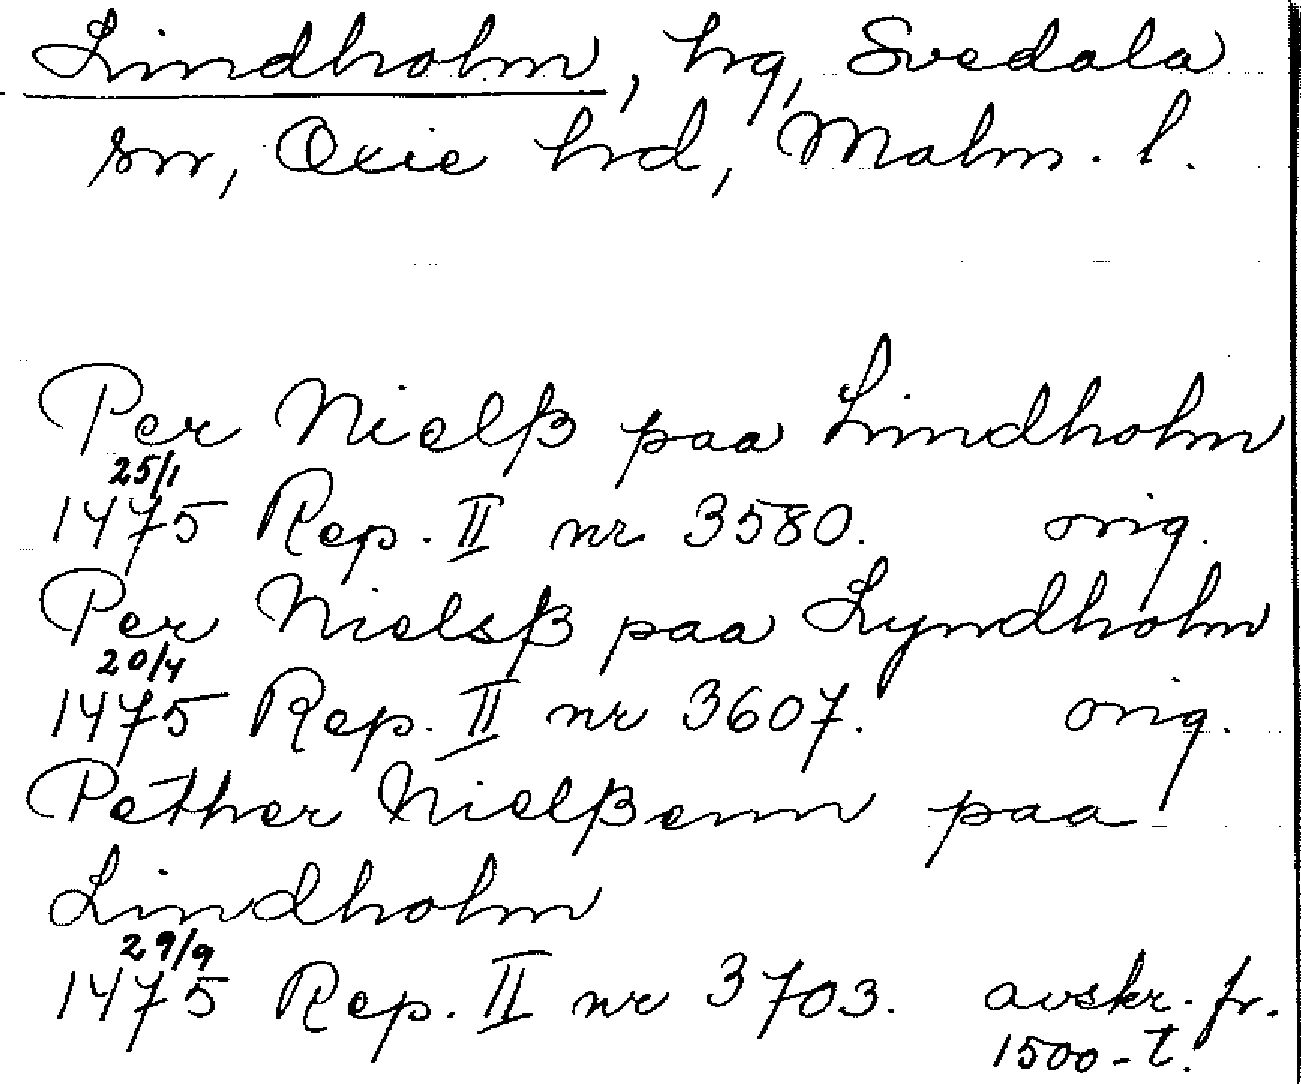 Lindholm, hg, Svedala
sn, Oxie hrd, Malm. l.
Per Nielß paa Lindholm
25/1
1475 Rep. II nr 3580. orig.
Per Nielsß paa Lyndholm
20/4
1475 Rep. II nr 3607. orig.
Pether Nielßenn paa
Lindholm
29/9
1475 Rep. II nr 3703. avskr. fr.
1500-t.